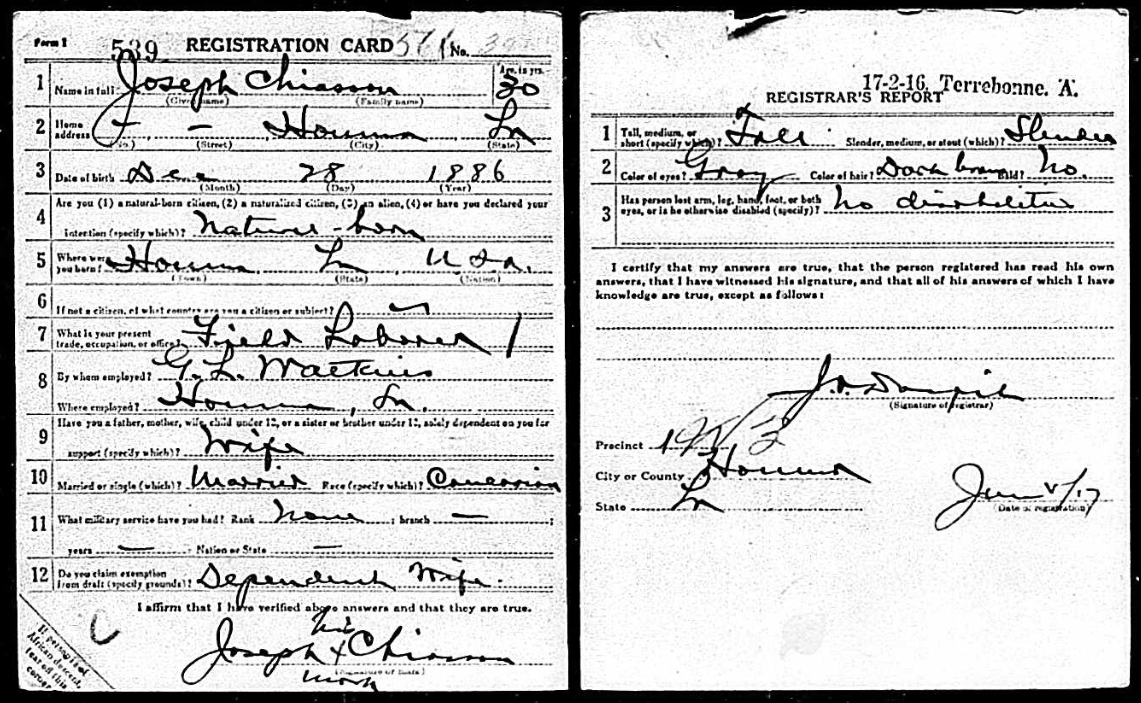 Form 1 539 REGISTRATION CARD 571 No.
1 Name in full Joseph Chiasson Age, in yrs. 30
(Given name) (Family name)
2 Home address Houma La
(No.) (Street) (City) (State)
3 Date of birth Dec 28 1886
(Month) (Day) (Year)
4 Are you (1) a natural-born citizen, (2) a naturalized citizen, (3) an alien, (4) or have you declared your
intention (specify which)? Natural-born
5 Where were you born? Houma La, U S a.
(Town) (State) (Nation)
6 If not a citizen, of what country are you a citizen or subject?
7 What is your present trade, occupation, or office? Field Laborer
8 By whom employed? G. L. Watkins
Where employed? Houma, La.
9 Have you a father, mother, wife, child under 12, or a sister or brother under 12, solely dependent on you for
support (specify which)? Wife
10 Married or single (which)? Married Race (specify which)? Caucasian
11 What military service have you had? Rank None ; branch — ;
years — Nation or State —
12 Do you claim exemption from draft (specify grounds)? Dependent Wife.
I affirm that I have verified above answers and that they are true.
his
Joseph X Chiasson
(Signature or mark)
mark
If person is of
African descent,
tear off this
corner
17-2-16, Terrebonne. A.
REGISTRAR'S REPORT
1 Tall, medium, or short (specify which)? Tall Slender, medium, or stout (which)? Slender
2 Color of eyes? Gray Color of hair? Dark brown Bald? No.
3 Has person lost arm, leg, hand, foot, or both eyes, or is he otherwise disabled (specify)? No disabilities
I certify that my answers are true, that the person registered has read his own
answers, that I have witnessed his signature, and that all of his answers of which I have
knowledge are true, except as follows:
(Signature of registrar)
Precinct
City or County Houma
State La
June 5/17
(Date of registration)